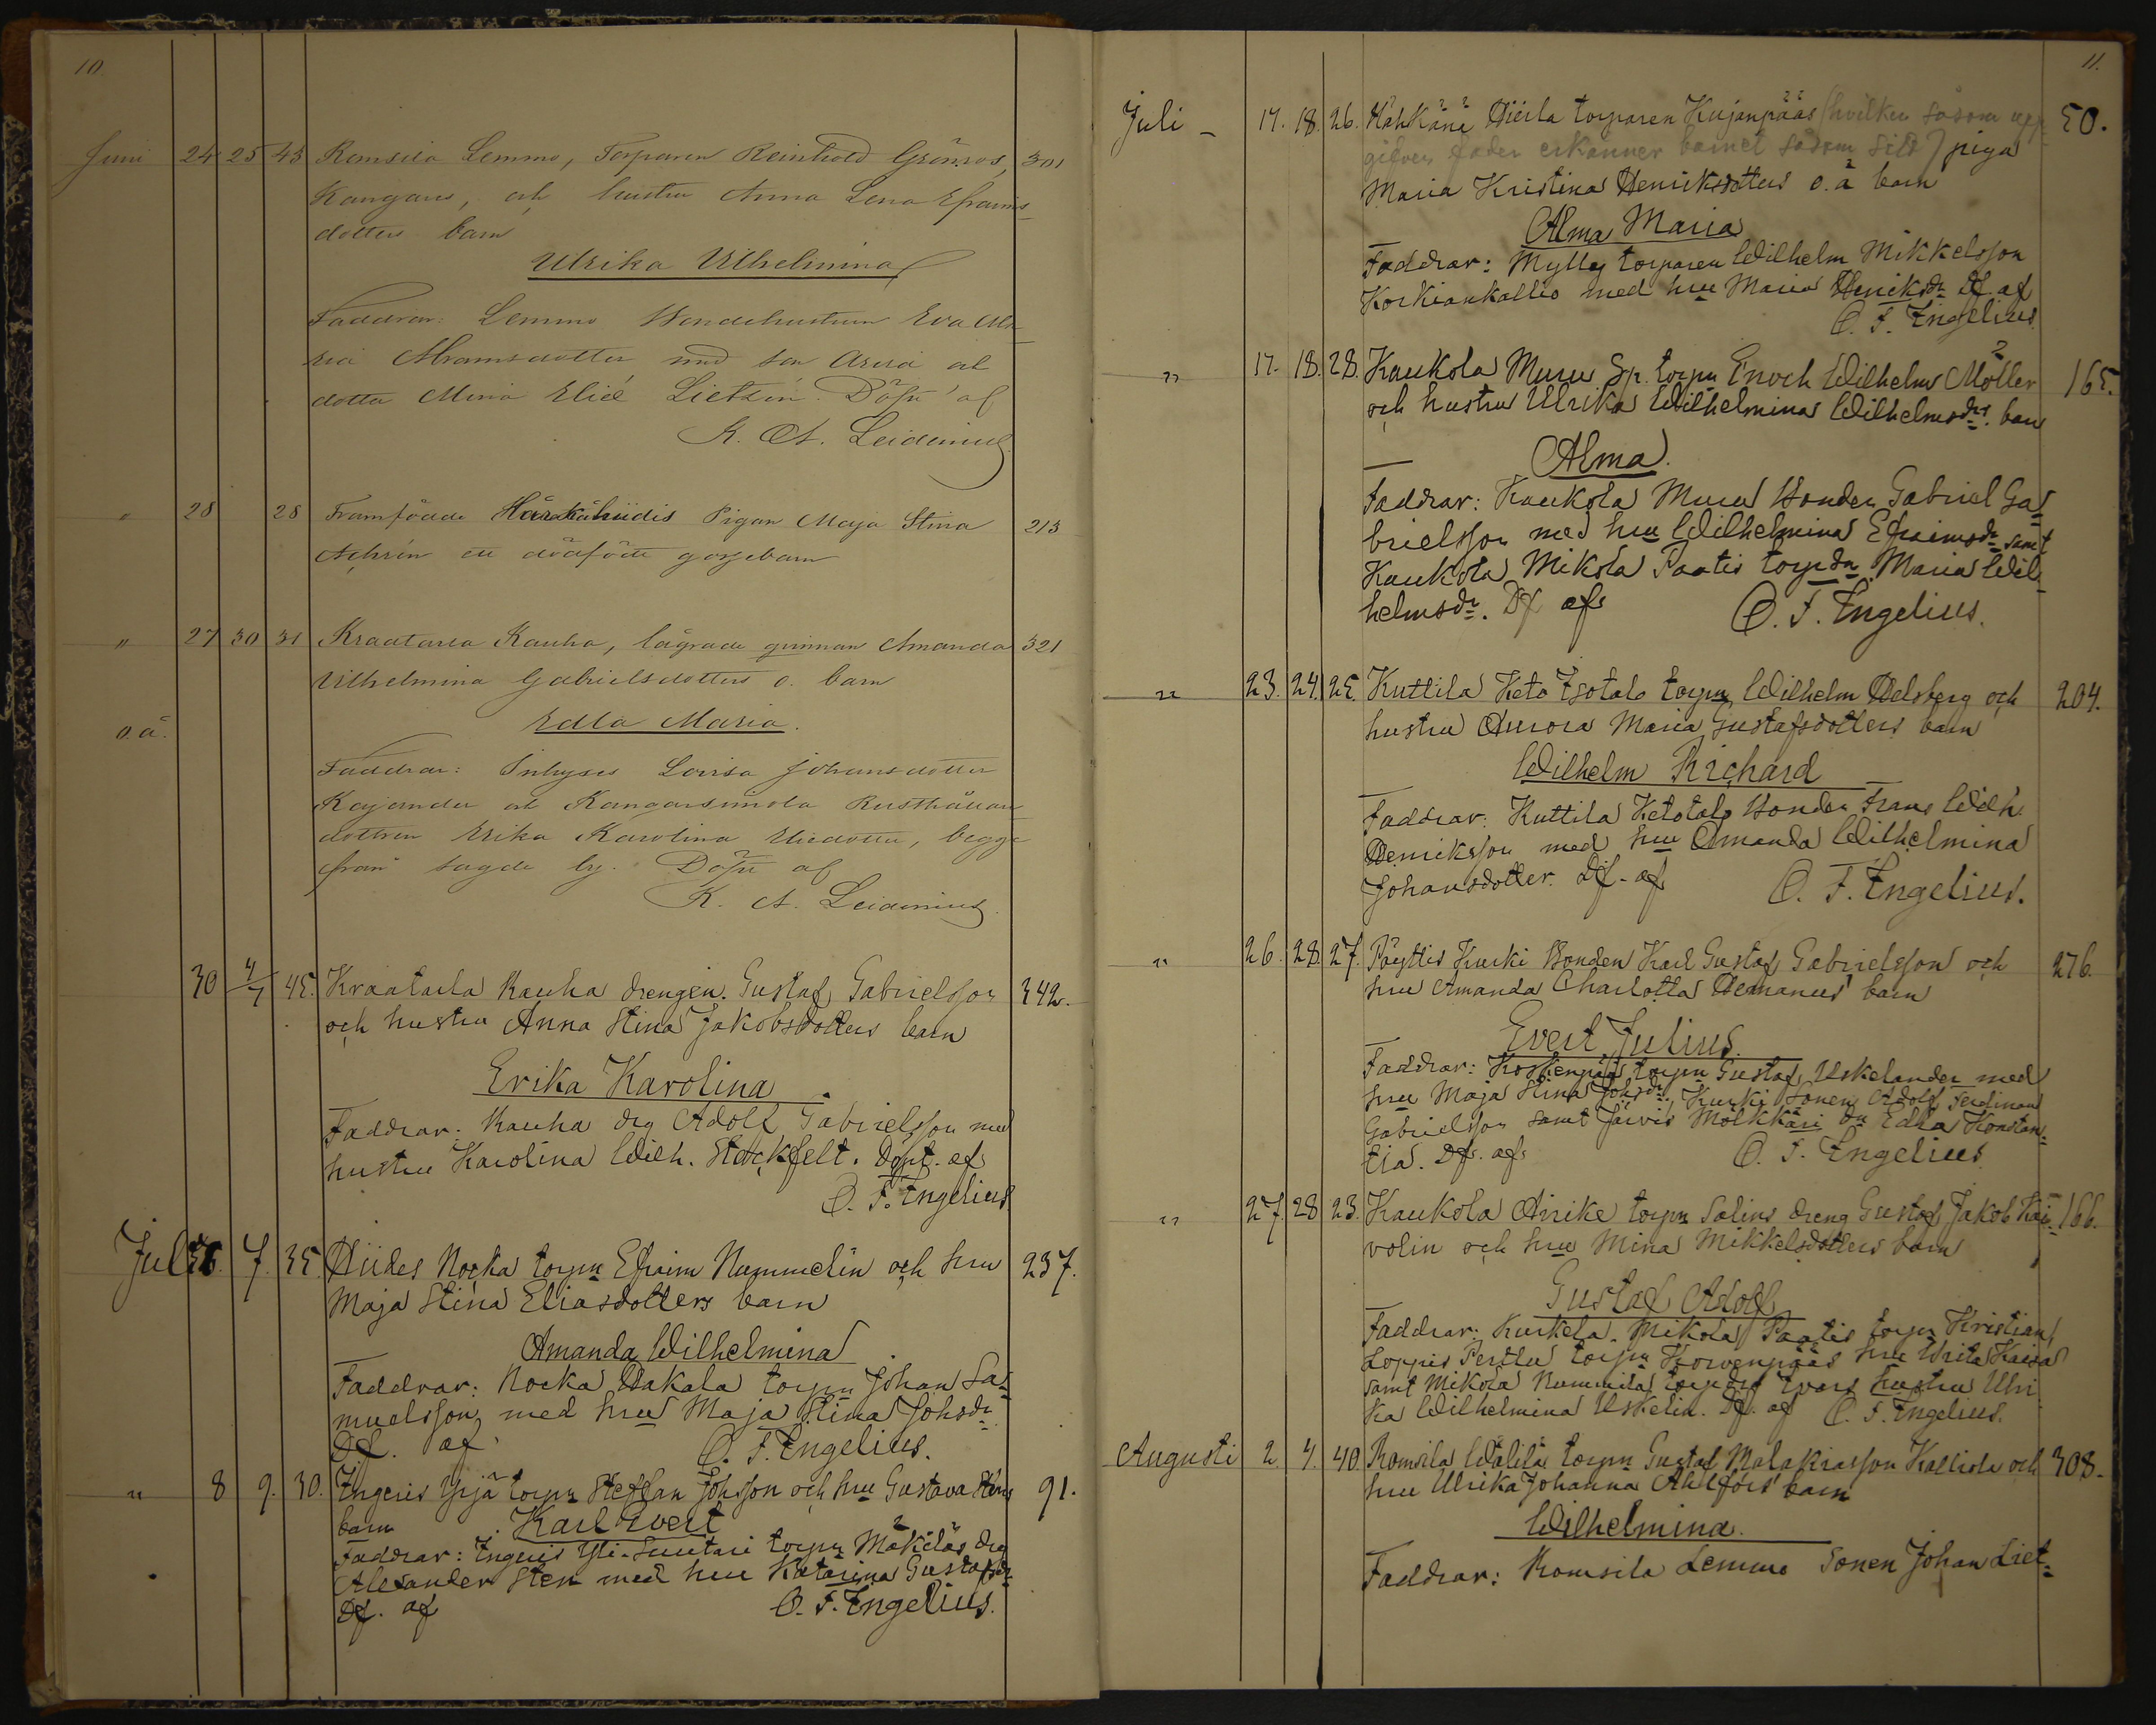 10
Juni 24 25 43 Romsila Lemmo, Torparen Reinhold Grönroos, 301
Kangars, och hustru Anna Lena Efraims-
dotters barn
Ulrika Vilhelmina
Faddrar: Lemmo Bondehustrun Eva Ma-
ria Abramsdotter med son Arvid och
dotter Mina Elisé Lietzén. Döpt af
K. A. Leidenius
" 28 28 Framfödde Härkähiidis Pigan Maja Stina 213
Achrén ett dödfödt gossebarn
" 27 30 31 Kraatarla Kauha, lägrade qvinnan Amanda 321
Vilhelmina Gabrielsdotters o. barn
o.ä. Edla Maria.
Faddrar: Inhyses Lovisa Johansdotter
Kajander och Kangarsimola Rusthållare
dottren Erika Karolina, begge
från sagde by. Döpt af
K. A. Leidenius
30 4/7 45. Kraatarla Kauha drengen Gustaf Gabrielsson 342.
och hustru Anna Stina Jakobsdotters barn
Erika Karolina
Faddrar: Kauha drg Adolf Gabrielsson med
hustru Karolina Wilh. Stackfelt. Döpt. af
O. F. Engelius
Juli 7. 35. Hiides Nocka torpn Efraim Nummelin och hru 237.
Maja Stina Eliasdotters barn
Amanda Wilhelmina
Faddrar: Nocka Hakala torpn Johan Sa-
muelsson med hru Maja Stina Johsdr
Df. af O. F. Engelius.
" 8 9. 30. Ingeris Yrjä torpn Steffan Johsson och hru Gustava 91.
barn Karl Evert
Faddrar: Ingeris Yli-Suutari torpn Mäkiläs drg
Alexander Sten med hru Katarina Gustafsdr
Df. af O. F. Engelius.
11.
Juli – 17. 18. 26. Hähkänä Hiirla torparen Kujanpääs (hvilken såsom upp- 50.
gifven fader erkänner barnet såsom sitt) piga
Maria Kristina Henriksdotters o.ä barn
Alma Maria
Faddrar: Mylly torparen Wilhelm Mikkelsson
Korkiankallio med hru Maria Henriksdr Df. af
O. F. Engelius
" 17. 18. 28. Kaukola Muru Sp. torpn Enoch Wilhelm Möller 165.
och hustru Ulrika Wilhelmina Wilhelmsdrs. barn
Alma.
Faddrar: Kaukola Muru Bonden Gabriel Ga-
brielsson med hru Wilhelmina Efraimsdr samt
Kaukola Mikola Paatis torpdn Maria Wil-
helmsdr. Df af O. F. Engelius.
" 23. 24. 25. Kuttila Keto Isotalo torpn Wilhelm Helsberg och 204.
hustru Aurora Maria Gustafsdotters barn
Wilhelm Richard
Faddrar: Kuttila Ketotalo Bonden Frans Wilh.
Henriksson med hru Amanda Wilhelmina
Johansdotter. Df. af O. F. Engelius.
" 26. 28. 27. Pöyttis Kurki Bonden Karl Gustaf Gabrielsson och 276.
hru Amanda Charlotta Hemanus barn
Evert Julius.
Faddrar: Koskenpää torpn Gustaf Uskelander med
hru Maja Stina Johsdr Kurki Sonen Adolf Ferdinand
Gabrielsson samt Järvis Mölkkäri dn Edla Konstan-
tia. Df. af O. F. Engelius
" 27. 28 23. Kaukola Anike torpn Salins dreng Gustaf Jakob Kai- 166.
volin och hru Mina Mikkelsdotters barn
Gustaf Adolf
Faddrar: Kurkela. Mikola Paatis torpn Kristian
Loppis Perttu torpn Korvenpääs hru Writa Kaisa
samt Mikola Nummila torpdrg Ivars hustru Ulri-
ka Wilhelmina Uskelin. Df. af O. F. Engelius.
Augusti 2 4. 40. Romsila Wälilä torpn Gustaf Malakiasson Kallisto och 308.
hru Ulrika Johanna Ahlfors' barn
Wilhelmina.
Faddrar: Romsila Lemmo Sonen Johan Liet-